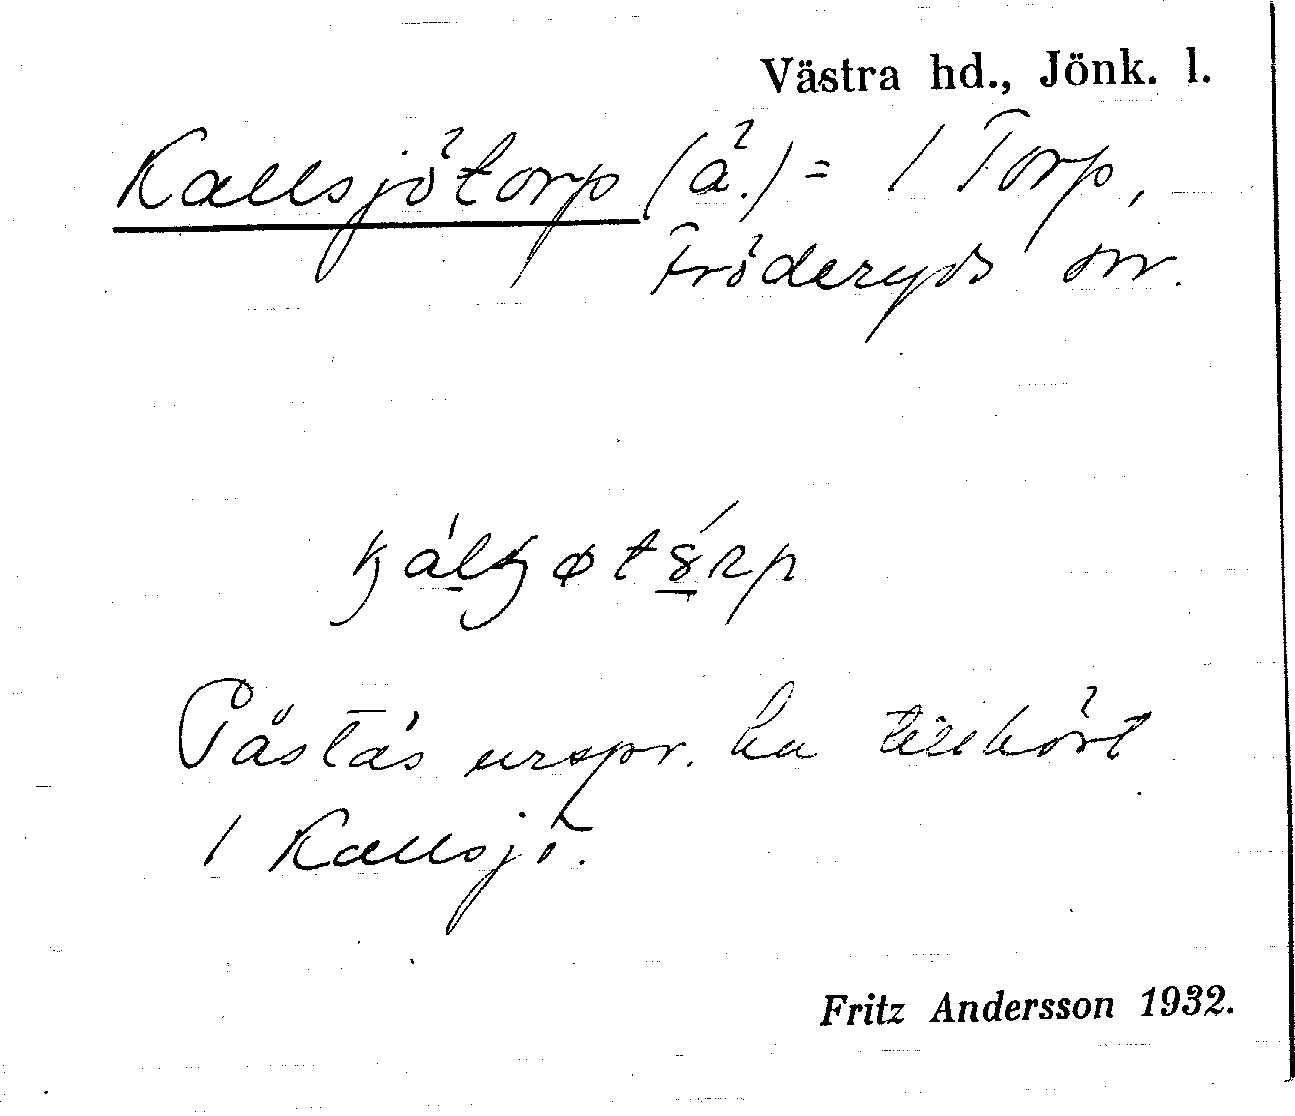 Västra hd., Jönk. l.
Kallsjötorp (ä.) = / Torp,
Fröderyds snr.
Påstås urspr. ha tillhört
/ Kallsjö.
Fritz Andersson 1932.